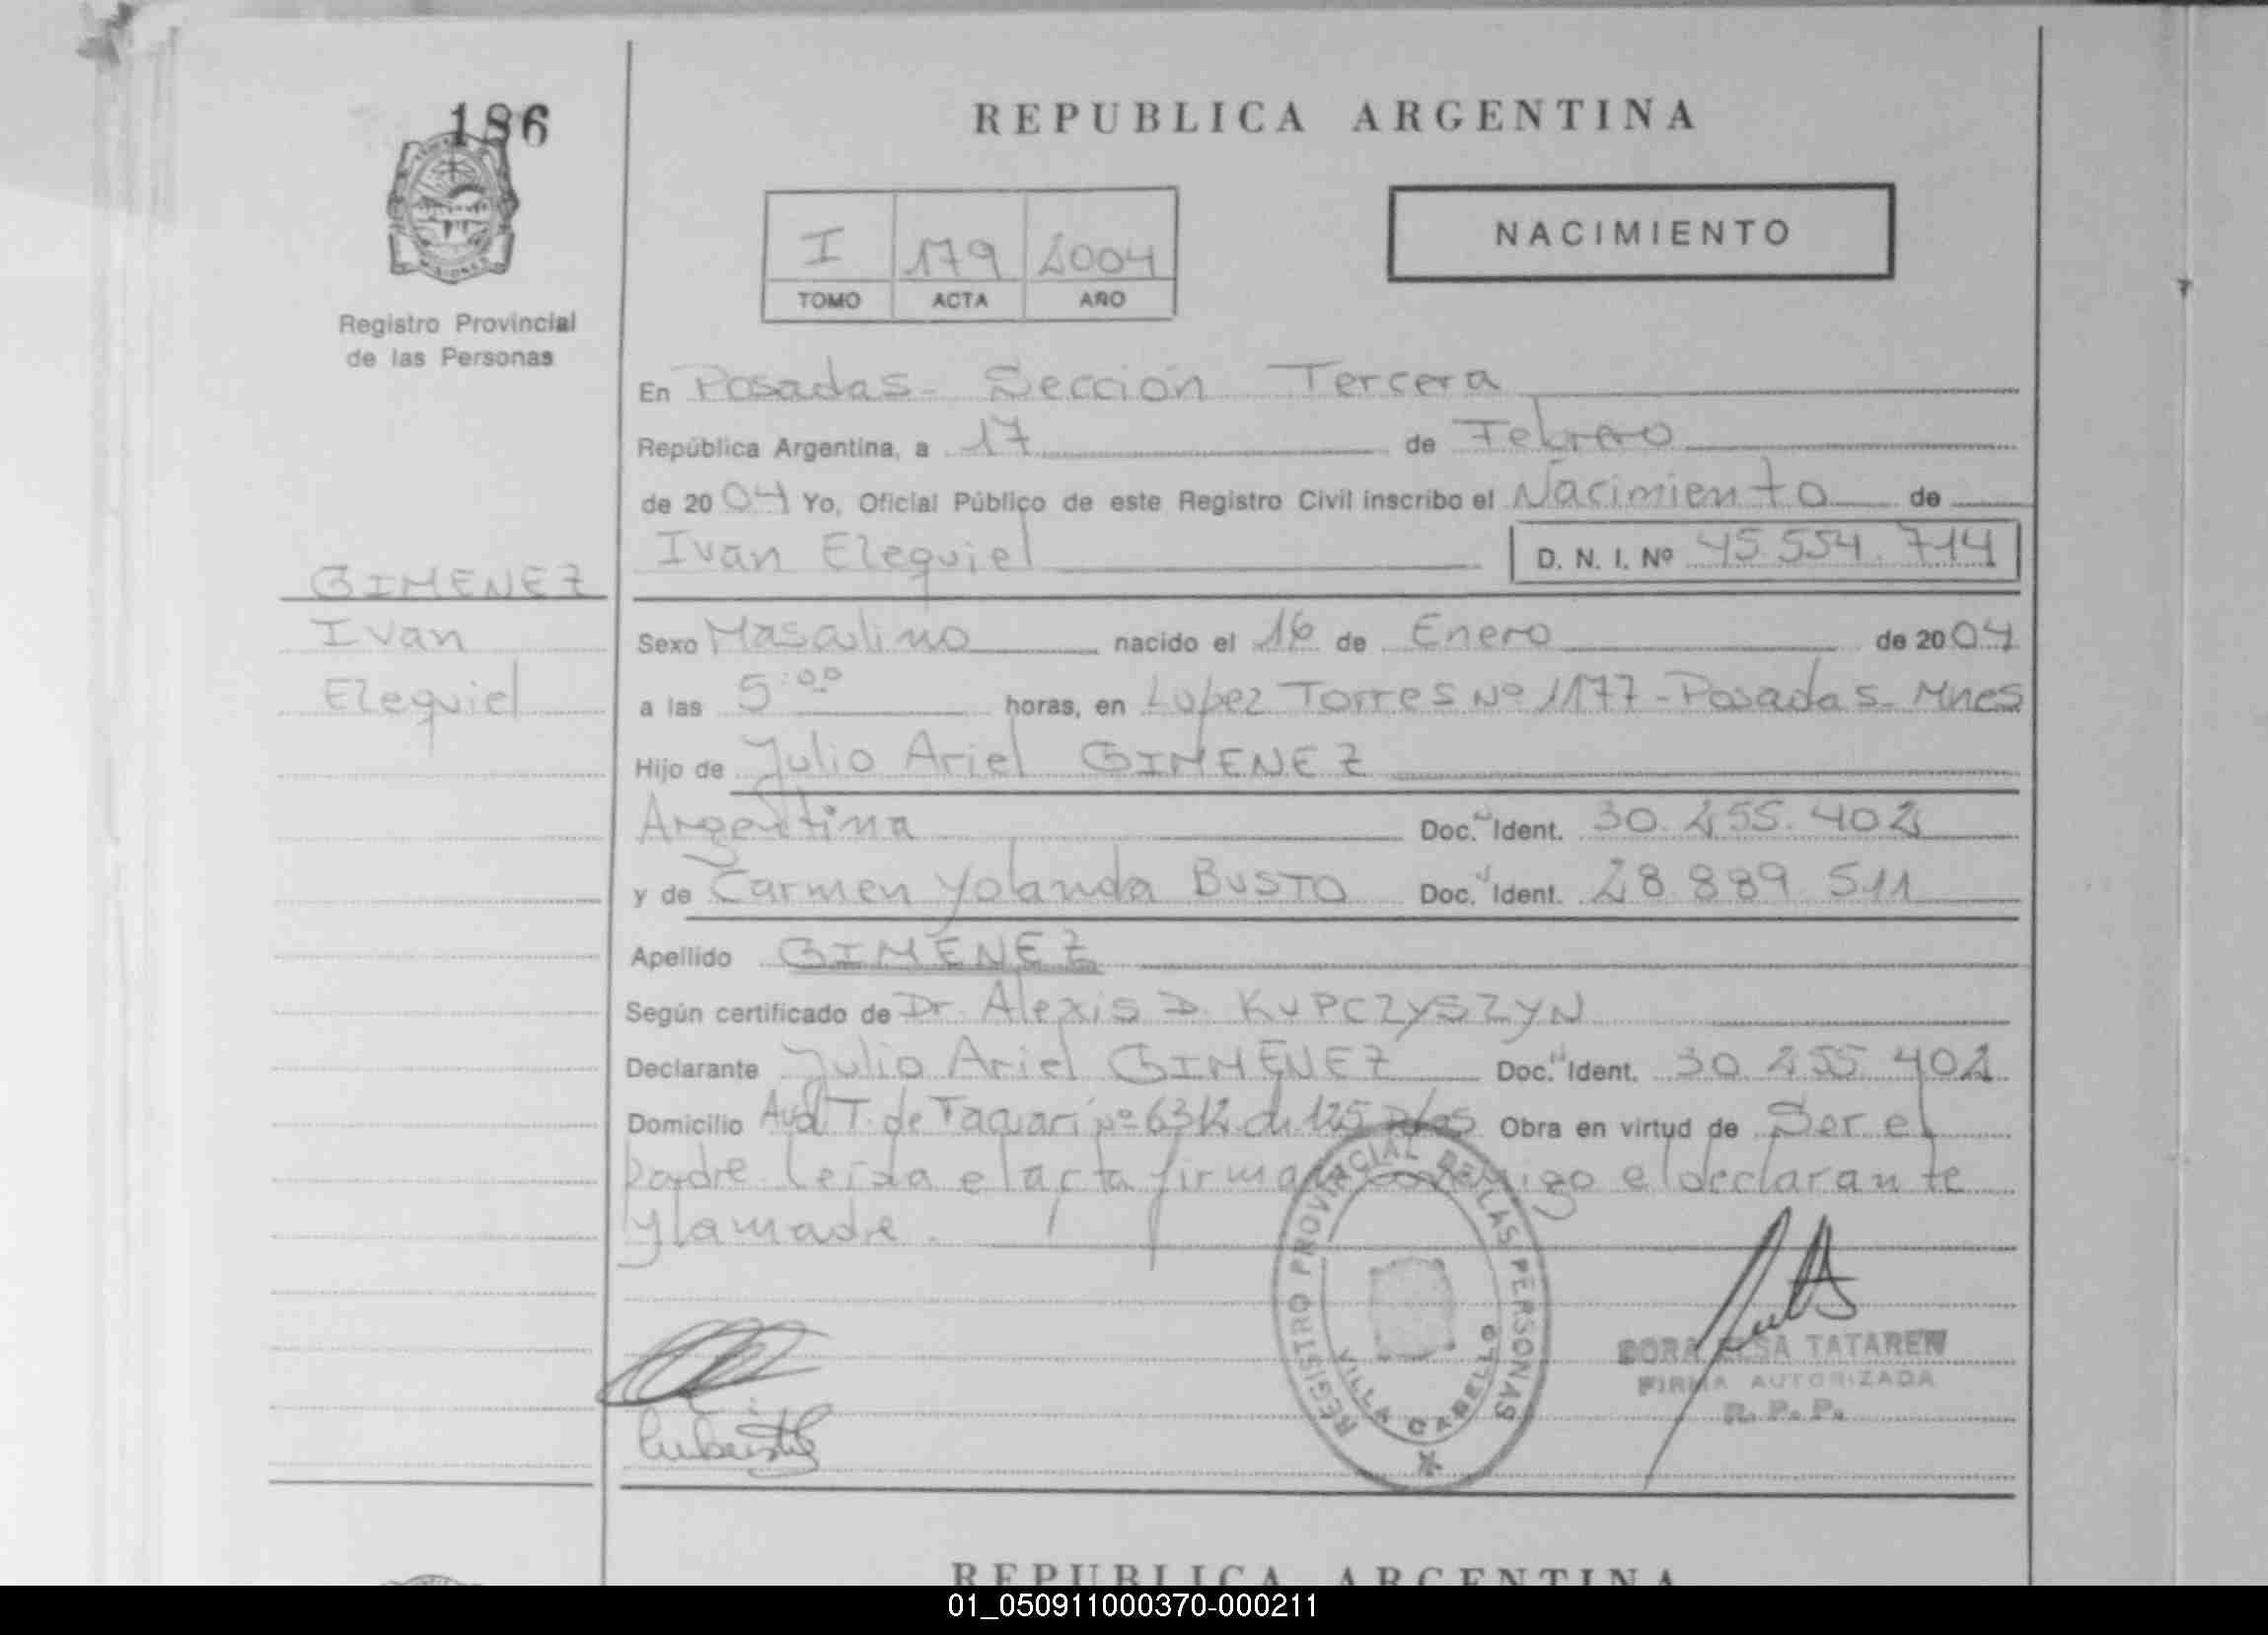 186
REPUBLICA ARGENTINA
I 179 2004
TOMO ACTA AÑO
NACIMIENTO
Registro Provincial
de las Personas
En Posadas - Sección Tercera
República Argentina, a 17 de Febrero
de 2004 Yo, Oficial Público de este Registro Civil inscribo el Nacimiento de
Ivan Ezequiel D. N. I. Nº 45.554.714
GIMENEZ
Ivan
Ezequiel
Sexo Masculino nacido el 16 de Enero de 2004
a las 5:00 horas, en Lopez Torres Nº 1177 - Posadas - Mnes
Hijo de Julio Ariel GIMENEZ
Argentina Doc. Ident. 30.255.402
y de Carmen Yolanda BUSTO Doc. Ident. 28.889.511
Apellido GIMENEZ
Según certificado de Dr. Alexis D. KUPCZYSZYN
Declarante Julio Ariel GIMENEZ Doc. Ident. 30.255.402
Domicilio Avd. T. de Tacuari nº 6312 ch 125 Pdas Obra en virtud de Ser el
padre. Leída el acta firma conmigo el declarante
y la madre.
REGISTRO PROVINCIAL DE LAS PERSONAS
VILLA CABELLO
DORA ELSA TATAREN
FIRMA AUTORIZADA
R. P. P.
REPUBLICA ARGENTINA
01_050911000370-000211